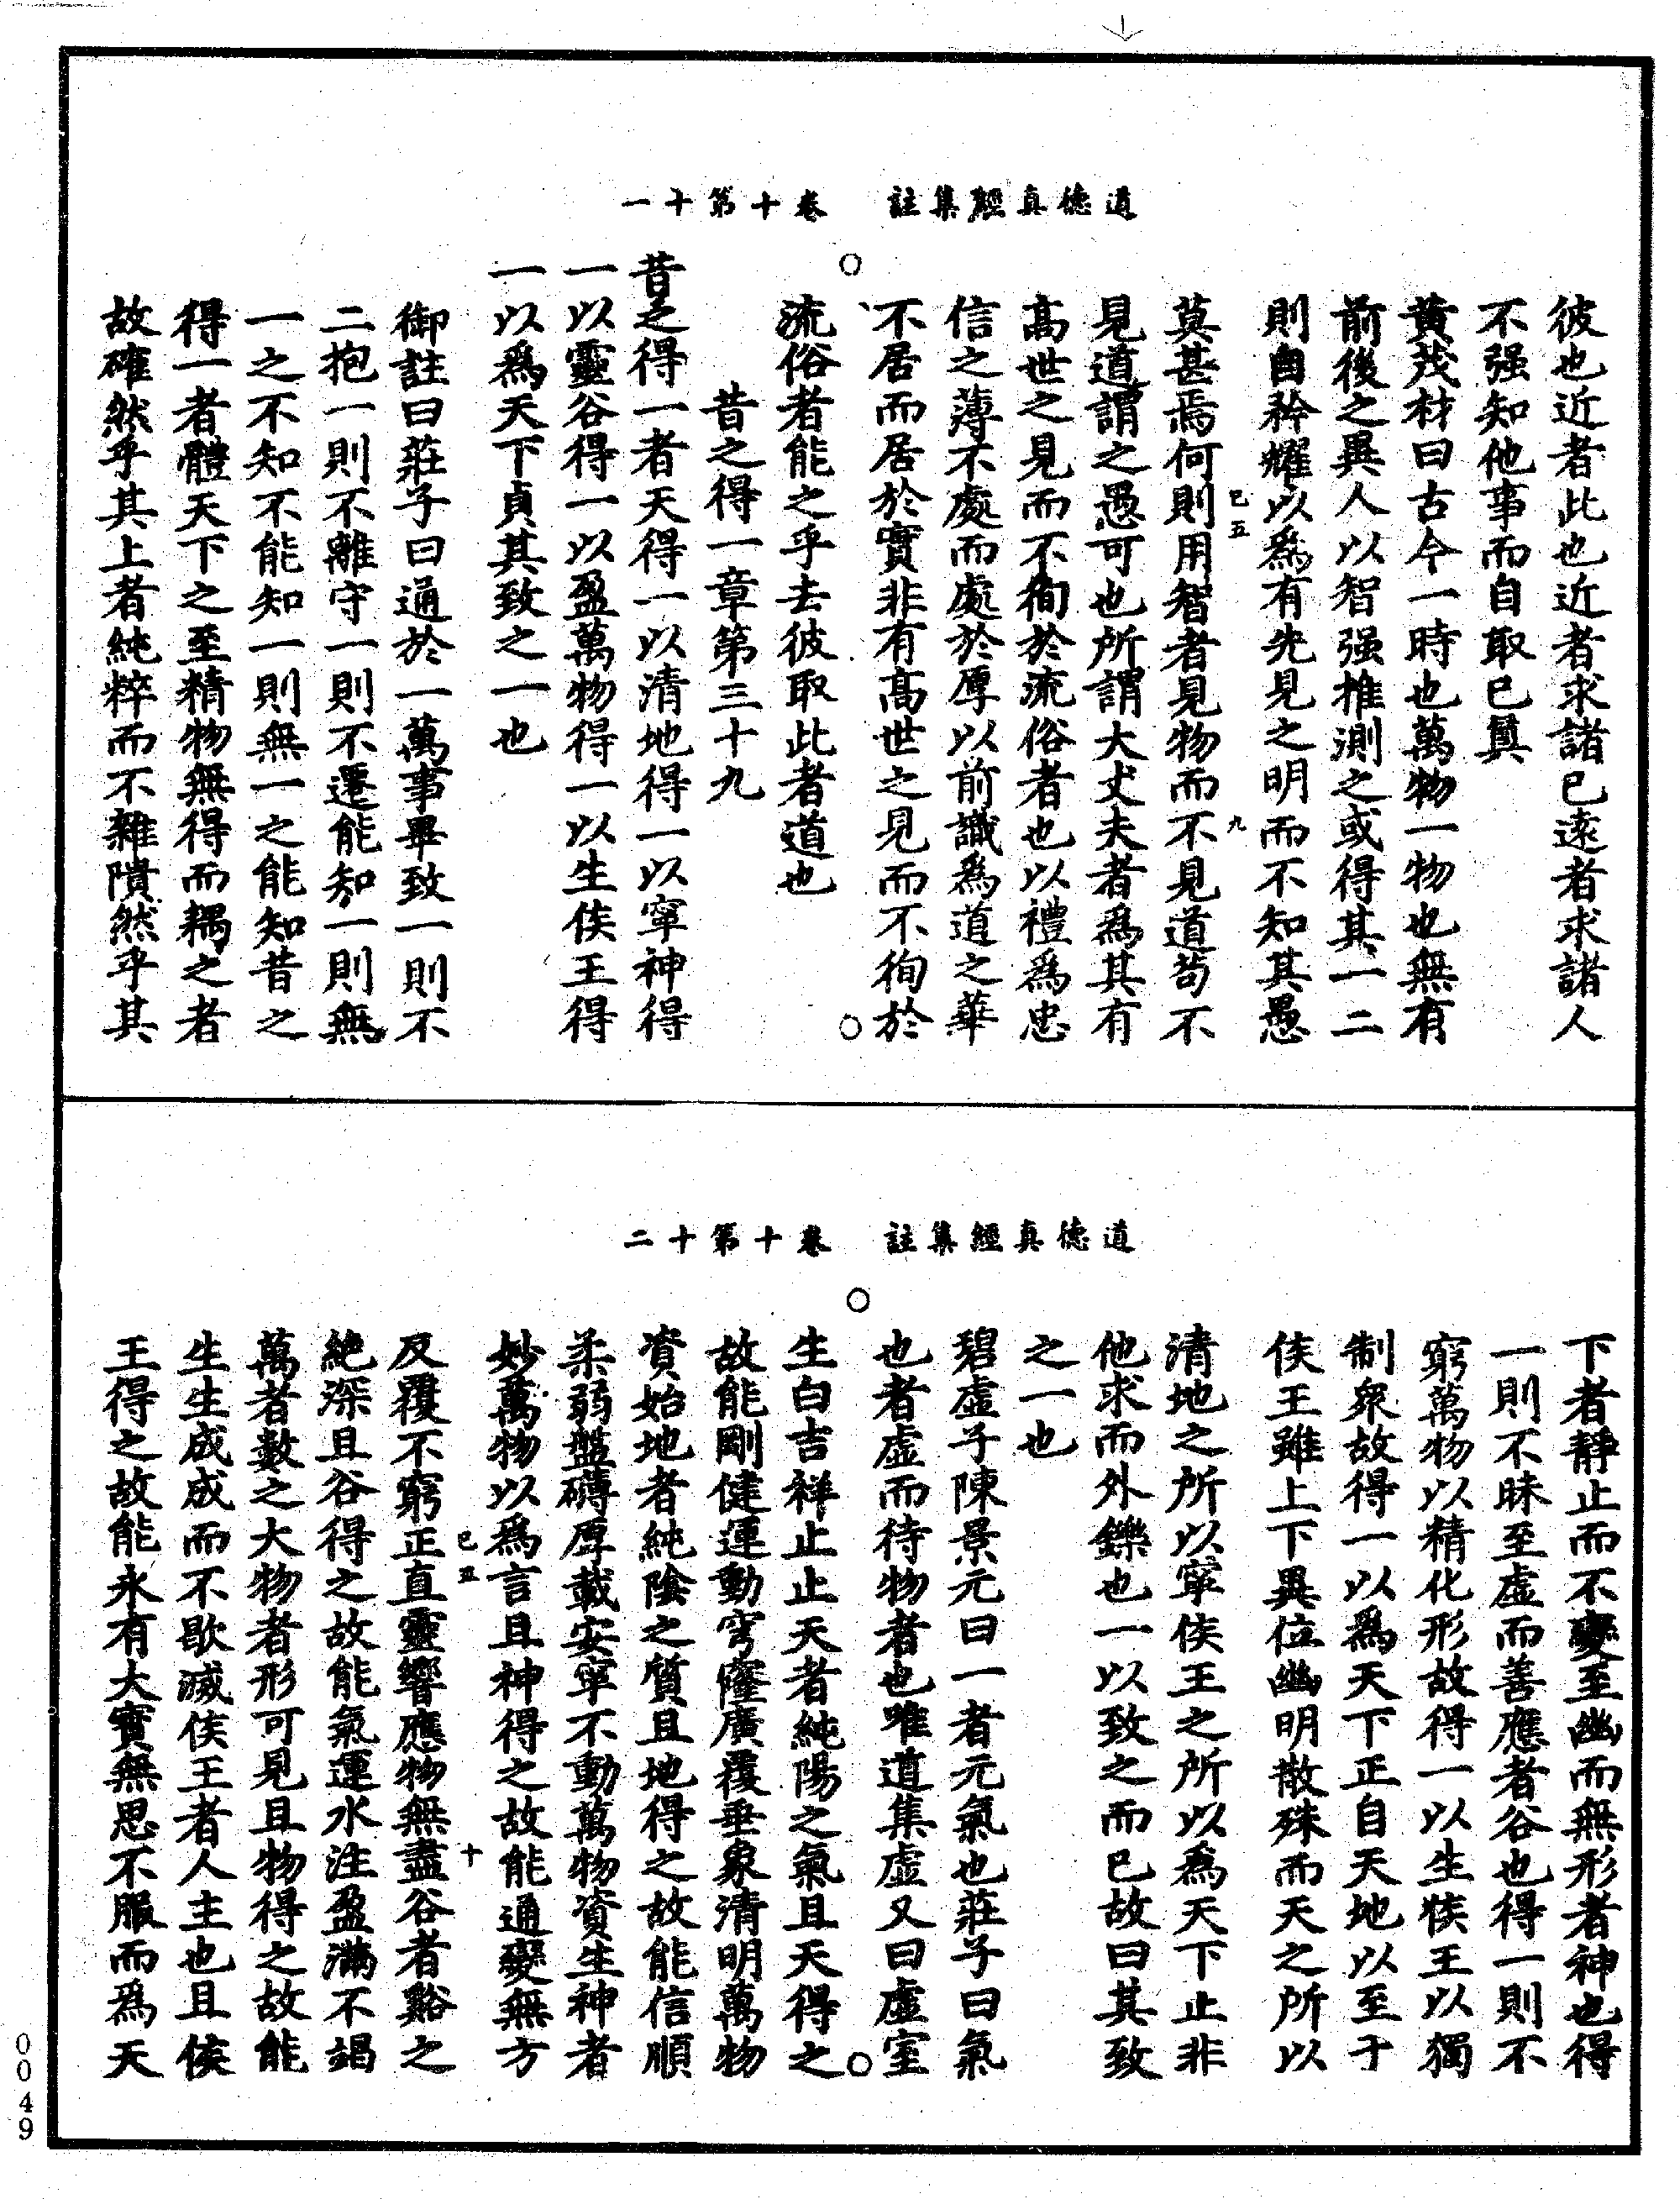 道德真經集註　卷十第十一
彼也近者此也近者求諸己遠者求諸人
不强知他事而自取已異
黃茂材曰古今一時也萬物一物也無有
前後之異人以智强推測之或得其一二
則自矜耀以爲有先見之明而不知其愚
己五　九
莫甚焉何則用智者見物而不見道苟不
見道謂之愚可也所謂大丈夫者爲其有
高世之見而不徇於流俗者也以禮爲忠
信之薄不處而處於厚以前識爲道之華
不居而居於實非有高世之見而不徇於
流俗者能之乎去彼取此者道也
昔之得一章第三十九
昔之得一者天得一以清地得一以寧神得
一以靈谷得一以盈萬物得一以生侯王得
一以爲天下貞其致之一也
御註曰莊子曰通於一萬事畢致一則不
二抱一則不離守一則不遷能知一則無
一之不知不能知一則無一之能知昔之
得一者體天下之至精物無得而耦之者
故確然乎其上者純粹而不雜隤然乎其
道德真經集註　卷十第十二
下者靜止而不變至幽而無形者神也得
一則不昧至虛而善應者谷也得一則不
窮萬物以精化形故得一以生侯王以獨
制衆故得一以爲天下正自天地以至于
侯王雖上下異位幽明散殊而天之所以
清地之所以寧侯王之所以爲天下止非
他求而外鑠也一以致之而已故曰其致
之一也
碧虛子陳景元曰一者元氣也莊子曰氣
也者虛而待物者也唯道集虛又曰虛室
生白吉祥止止天者純陽之氣且天得之
故能剛健運動穹窿廣覆垂象清明萬物
資始地者純陰之質且地得之故能信順
柔弱盤礴厚載安寧不動萬物資生神者
妙萬物以爲言且神得之故能通變無方
己五　十
反覆不窮正直靈響應物無盡谷者谿之
絶深且谷得之故能氣運水注盈滿不竭
萬者數之大物者形可見且物得之故能
生生成成而不歇滅侯王者人主也且侯
王得之故能永有大寶無思不服而爲天
0049